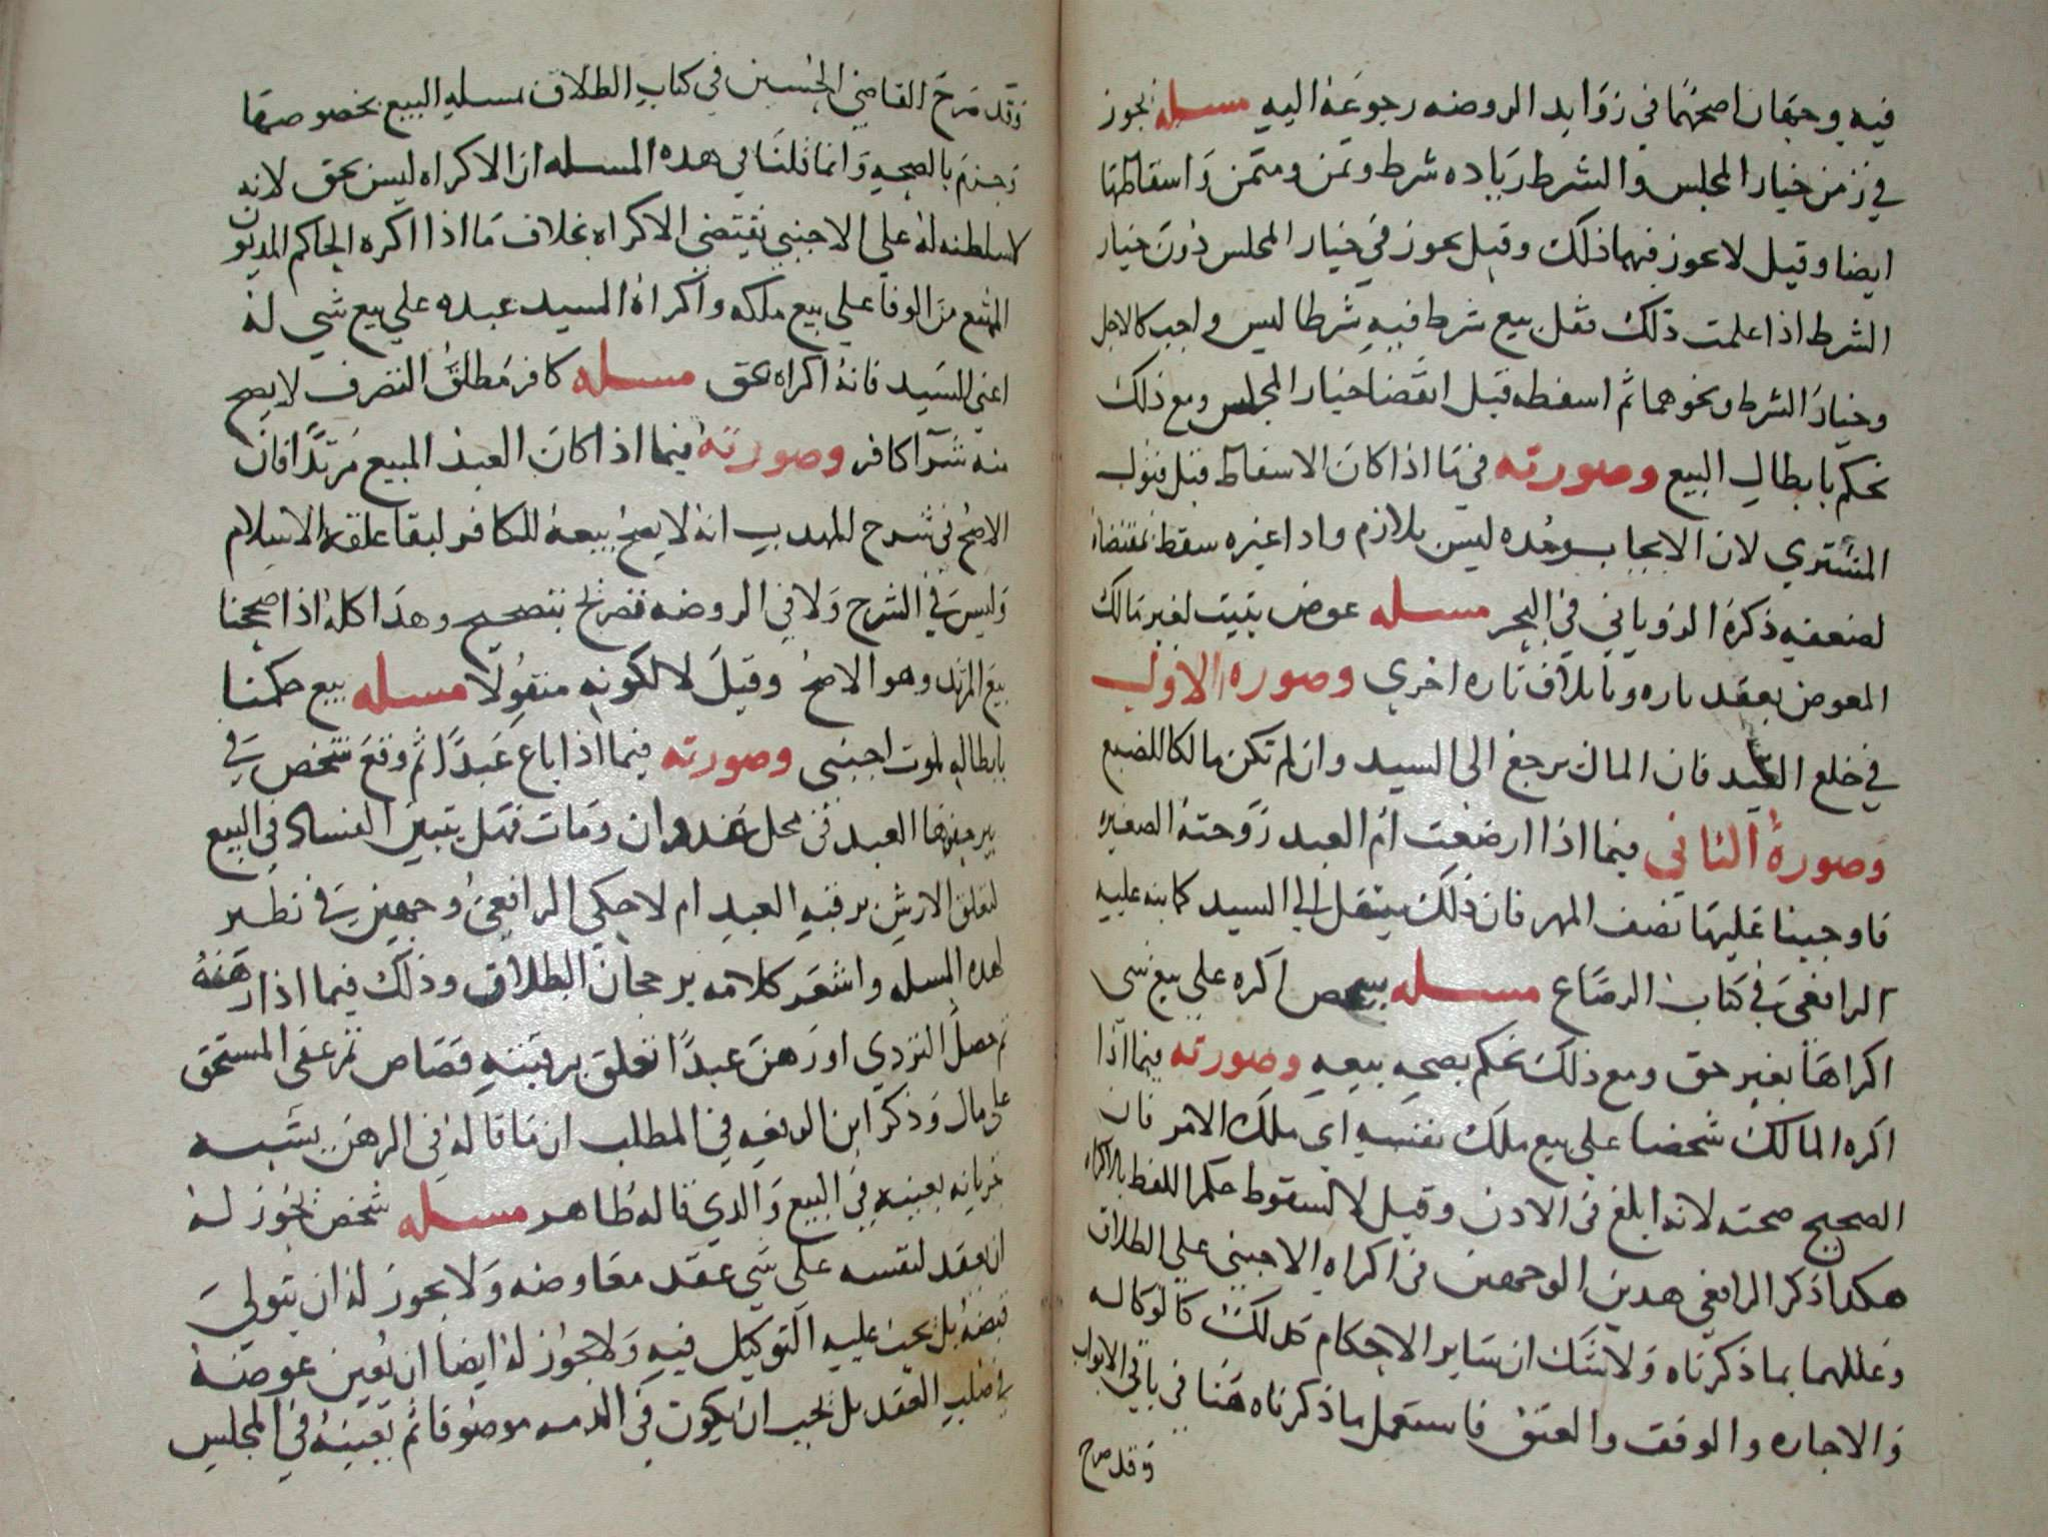 فيه وجهان اصحهما في زوايد الروضه رجوعه اليه مسله يجوز
في زمن خيار المجلس والشرط زياده شرط وثمن ومثمن واسقاطها
ايضا وقيل لا يجوز فيهما ذلك وقيل يجوز في خيار المجلس دون خيار
الشرط اذا علمت ذلك فقل بيع شرط فيه شرطا ليس واجب كالاجل
وخيار الشرط ونحوهما ثم اسقطه قبل انقضا خيار المجلس ومع ذلك
نحكم بابطال البيع وصورته في ما اذا كان الاسقاط قبل قبول
المشتري لان الايجاب وحده ليس بلازم واذا غيره سقط مقتضاه
لضعفه ذكره الروياني في البحر مسله عوض يثبت لغير مالك
المعوض بعقد تاره وباتلاف تاره اخري وصوره الاول
في خلع العبد فان المال يرجع الى السيد وان لم تكن مالكا للبضع
وصورة الثاني فيما اذا ارضعت ام العبد زوجته الصغيره
فاوجبنا عليها نصف المهر فان ذلك ينتقل الى السيد كما نبه عليه
الرافعي في كتاب الرضاع مسله شخص اكره علي بيع شي
اكراها بغير حق ومع ذلك نحكم بصحه بيعه وصورته فيما اذا
اكره المالك شخصا علي بيع ملك نفسه اي ملك الامر فان
الصحيح صحته لانه ابلغ في الاذن وقيل لا لسقوط حكم اللفظ بالاكراه
هكذا ذكر الرافعي هذين الوجهين في اكراه الاجنبي علي الطلاق
وعللهما بما ذكرناه ولا شك ان ساير الاحكام كذلك كالوكاله
والاجاره والوقف والعتق فاستعمل ما ذكرناه هنا في باقي الابواب
وقد صرح
وقد صرح القاضي الحسين في كتاب الطلاق بمسله البيع بخصوصها
وجزم بالصحه وانما قلنا في هذه المسله ان الاكراه ليس بحق لانه
لا سلطنه له علي الاجنبي تقتضي الاكراه بخلاف ما اذا اكره الحاكم المديون
الممتنع من الوفا علي بيع ملكه واكراه السيد عبده علي بيع شي له
اعني للسيد فانه اكراه بحق مسله كافر مطلق التصرف لا يصح
منه شرا كافر وصورته فيما اذا كان العبد المبيع مرتدا فان
الاصح في شرح المهذب انه لا يصح بيعه للكافر لبقا علقه الاسلام
وليس في الشرح ولا في الروضه تصريح بتصحيح وهذا كله اذا صححنا
بيع المرتد وهو الاصح وقيل لا لكونه مقتولا مسله بيع حكمنا
بابطاله لموت اجنبي وصورته فيما اذا باع عبدا ثم وقع شخص في
بير حفرها العبد في محل عدوان ومات فهل يتبين الفساد في البيع
لتعلق الارش برقبه العبد ام لا حكي الرافعي وجهين في نظير
هذه المسله واشعر كلامه برجحان البطلان وذلك فيما اذا رهنه
ثم حصل التردي او رهن عبدا تعلق برقبته قصاص ثم عفى المستحق
علي مال وذكر ابن الرفعه في المطلب ان ما قاله في الرهن يشبه
جريانه بعينه في البيع والذي قاله ظاهر مسله شخص يجوز له
ان يعقد لنفسه علي شي عقد معاوضه ولا يجوز له ان يتولي
قبضه بل يجب عليه التوكيل فيه ولا يجوز له ايضا ان يعين عوضه
في صلب العقد بل يجب ان يكون في الذمه موصوفا ثم يعينه في المجلس